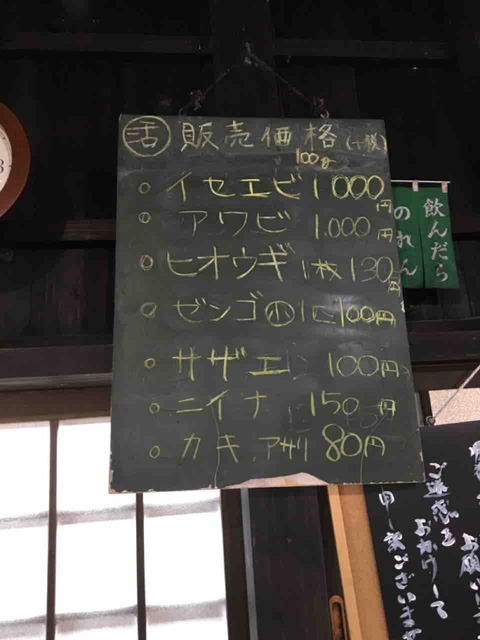 活 販売価格(+税)
100g
イセエビ 1000円
アワビ 1.000円
ヒオウギ 1枚130円
ゼンゴ 小 100円
サザエ 100円
ニイナ 150円
カキ.アサリ 80円
飲んだら
のれん
ご迷惑を
おかけして
申訳ございます